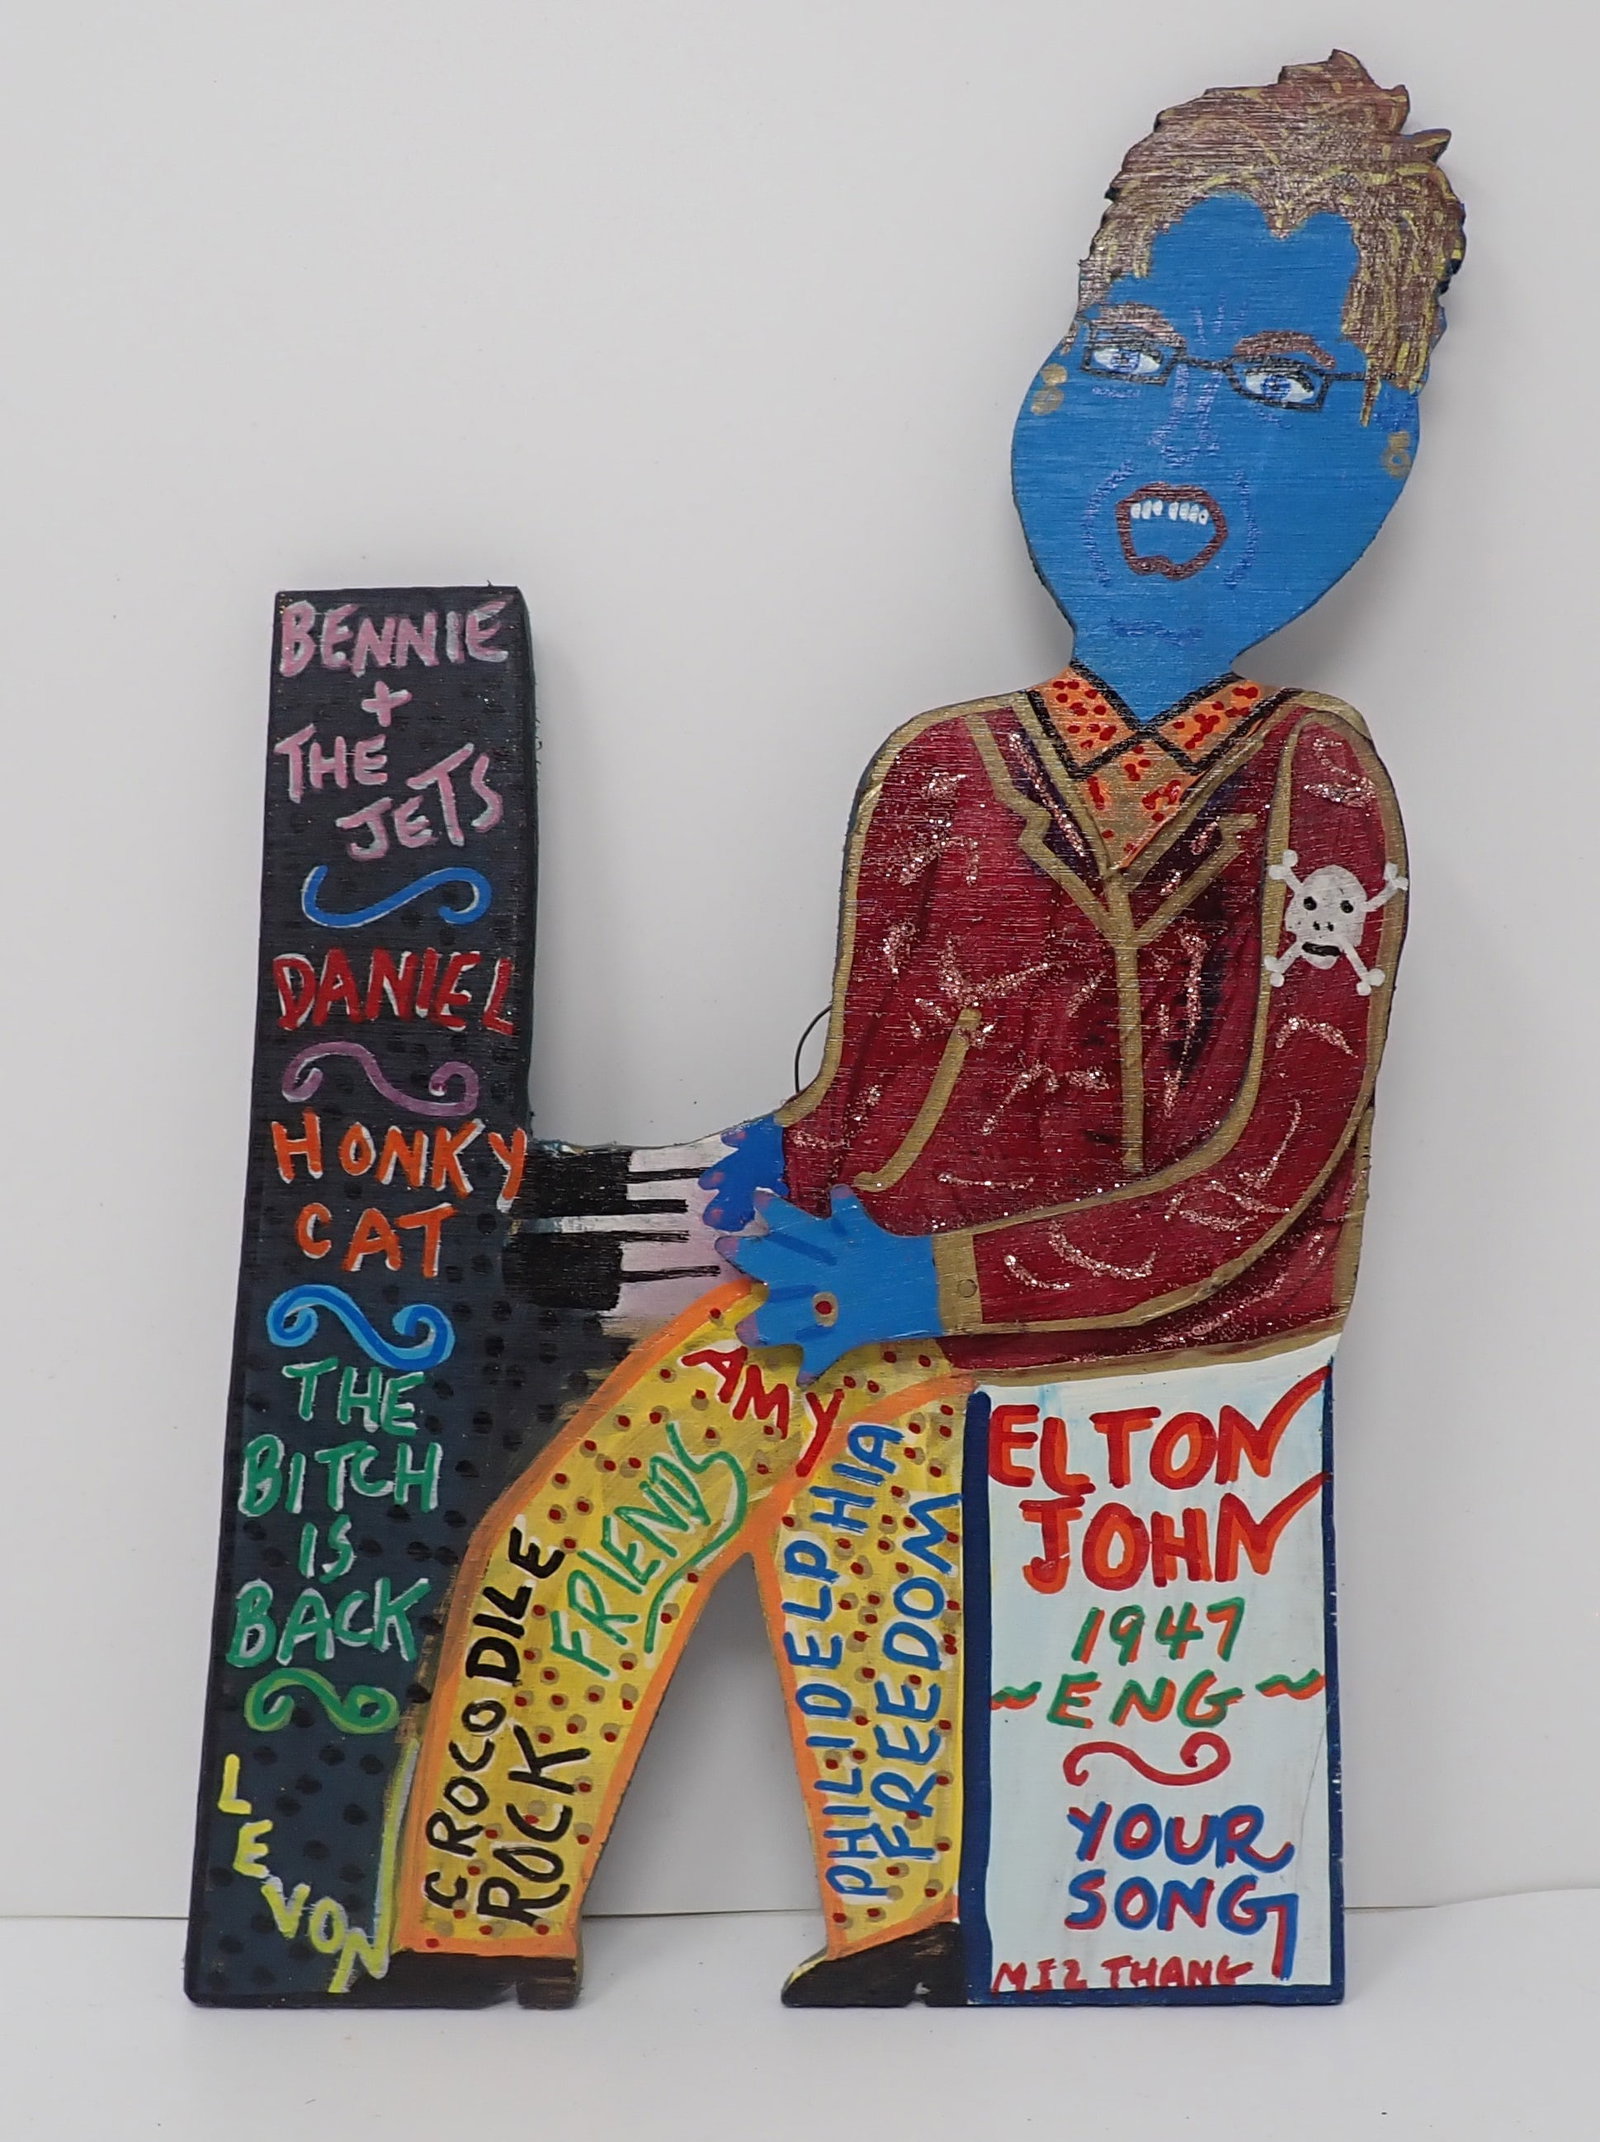 BENNIE
+
THE
JETS
DANIEL
HONKY
CAT
THE
BITCH
IS
BACK
LEVON
CROCODILE
ROCK
FRIENDS
AMY
PHILIDELPHIA
FREEDOM
ELTON
JOHN
1947
~ENG~
YOUR
SONG
MIZ THANG